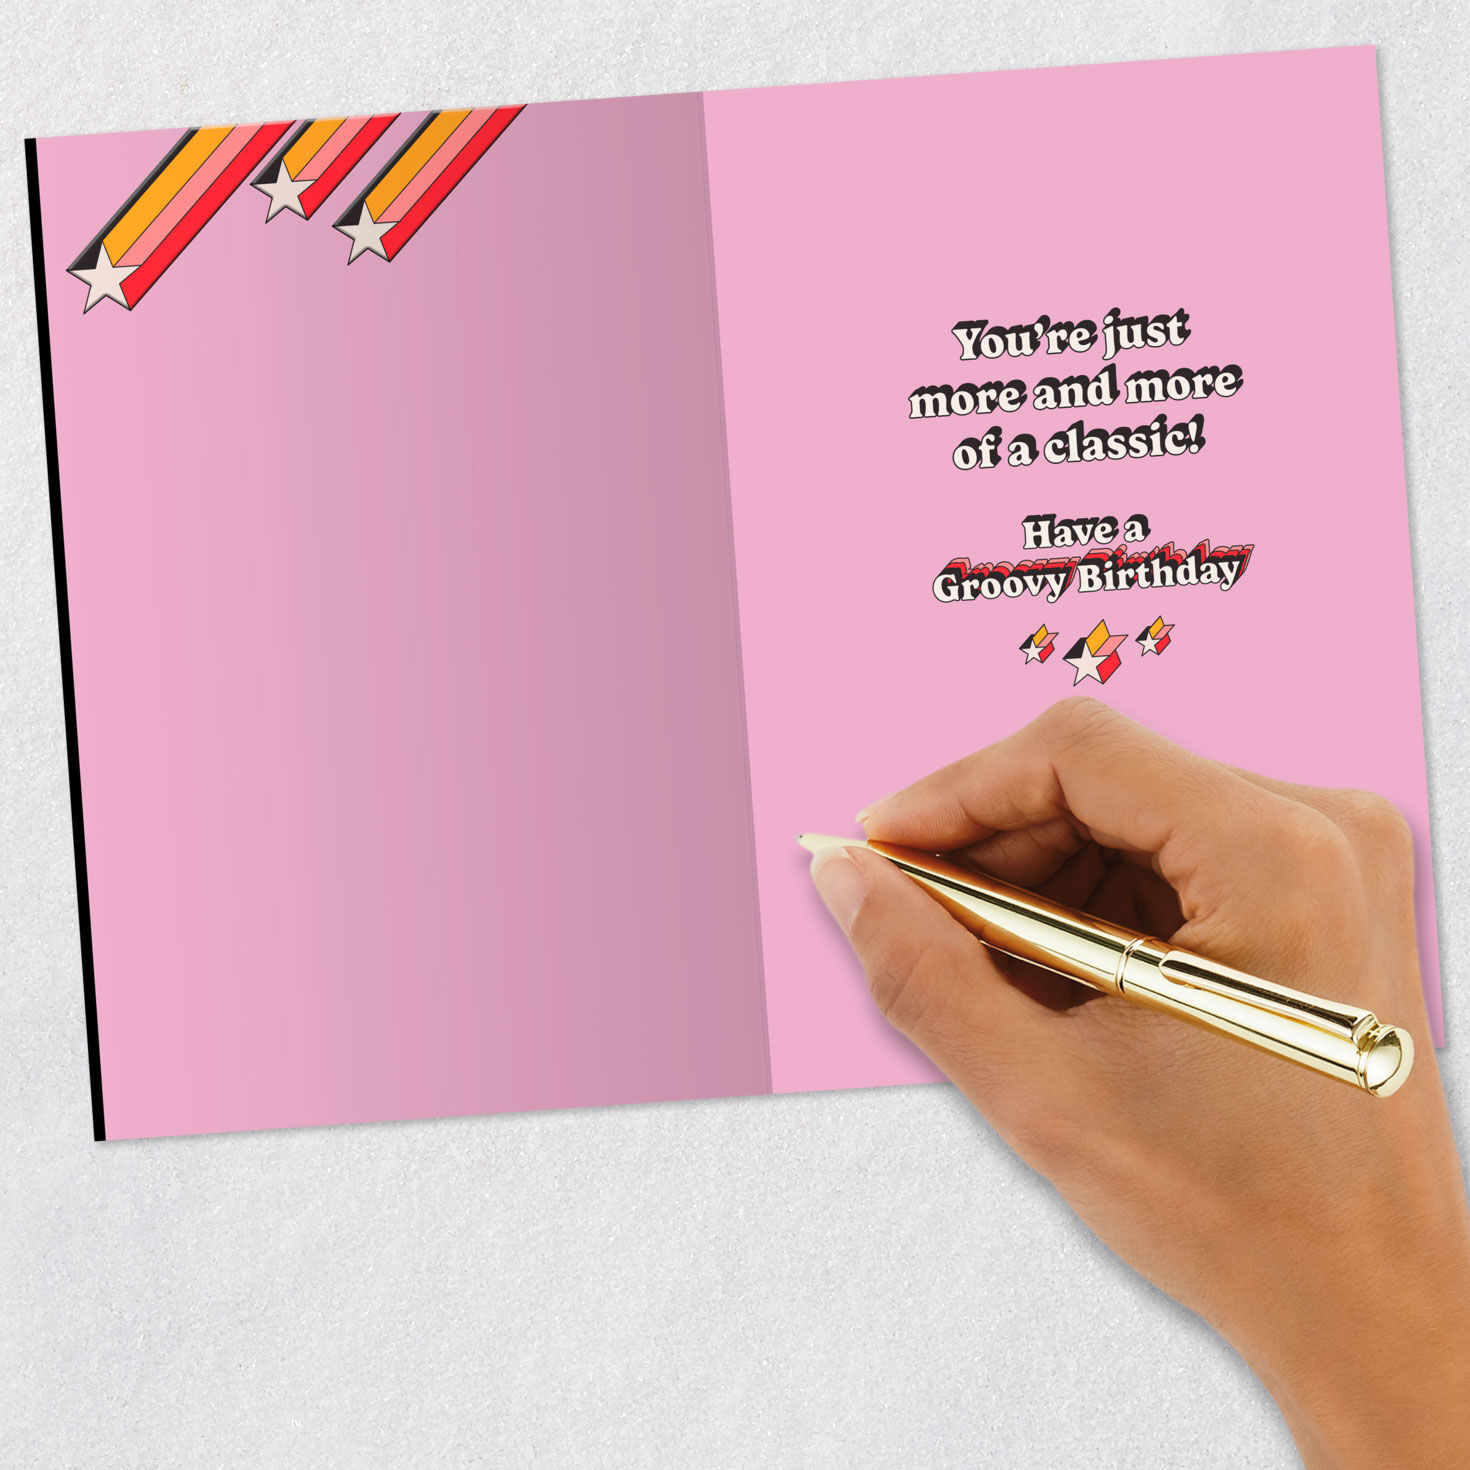 You're just
more and more
of a classic!
Have a
Groovy Birthday